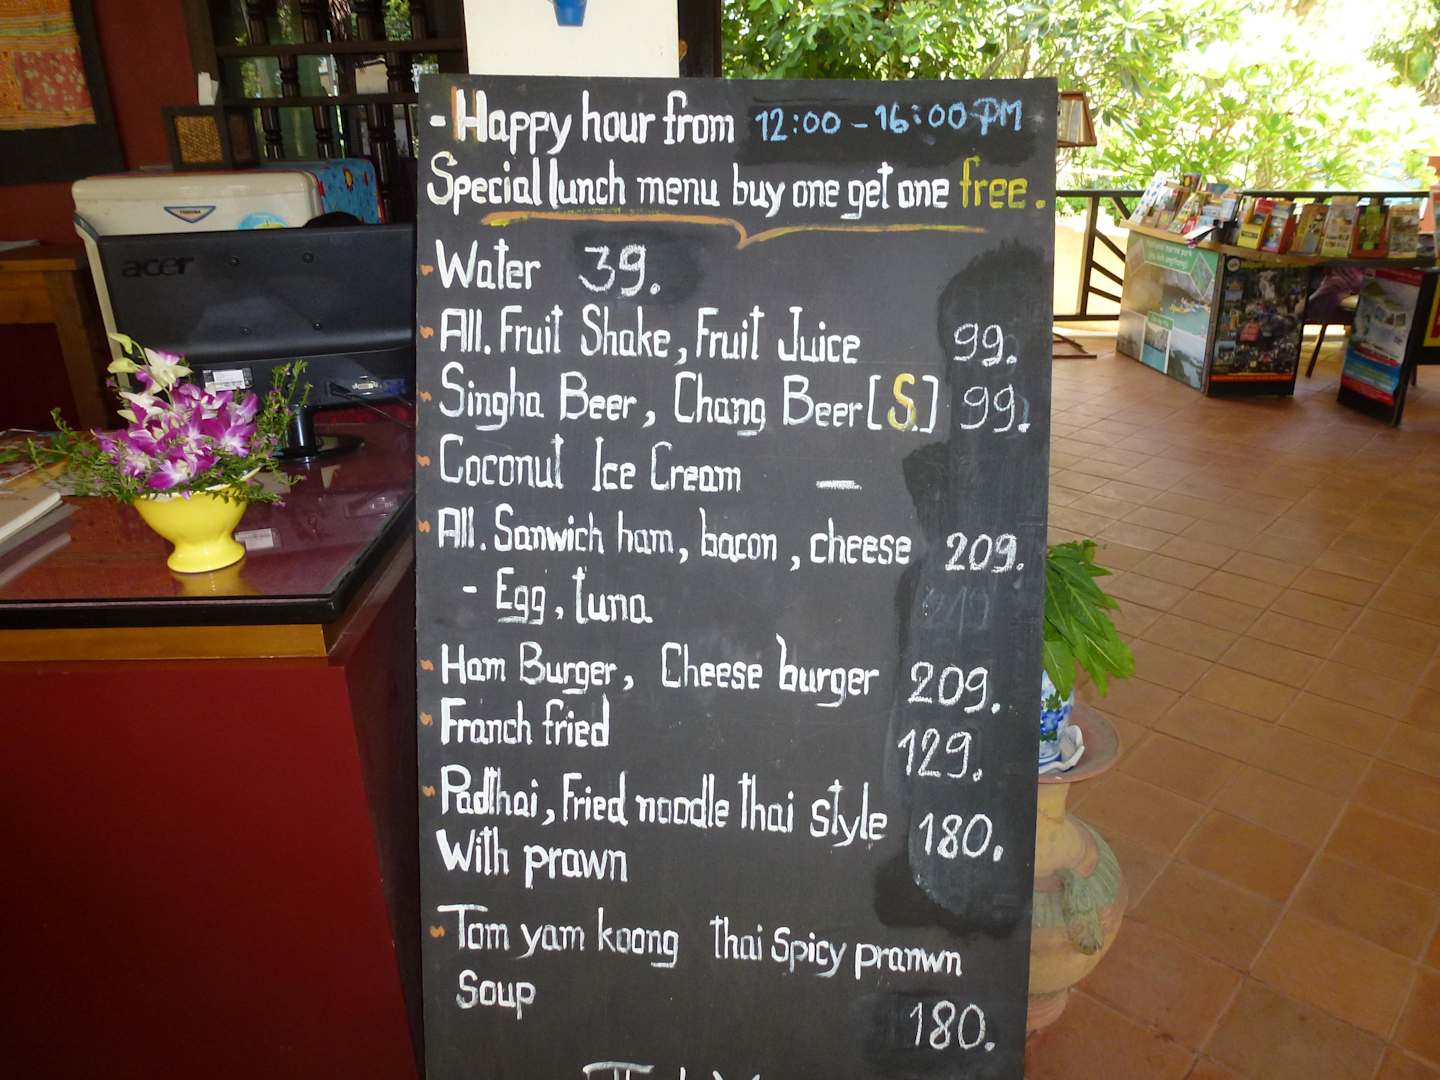 acer
- Happy hour from 12:00 - 16:00 PM
Special lunch menu buy one get one free.
Water 39.
All. Fruit Shake, Fruit Juice 99.
Singha Beer, Chang Beer [S.] 99.
Coconut Ice Cream —
All. Sanwich ham, bacon, cheese 209.
- Egg, tuna
Ham Burger, Cheese burger 209.
Franch fried 129.
Padthai, Fried noodle thai style 180.
With prawn
Tom yam koong thai Spicy pranwn
Soup 180.